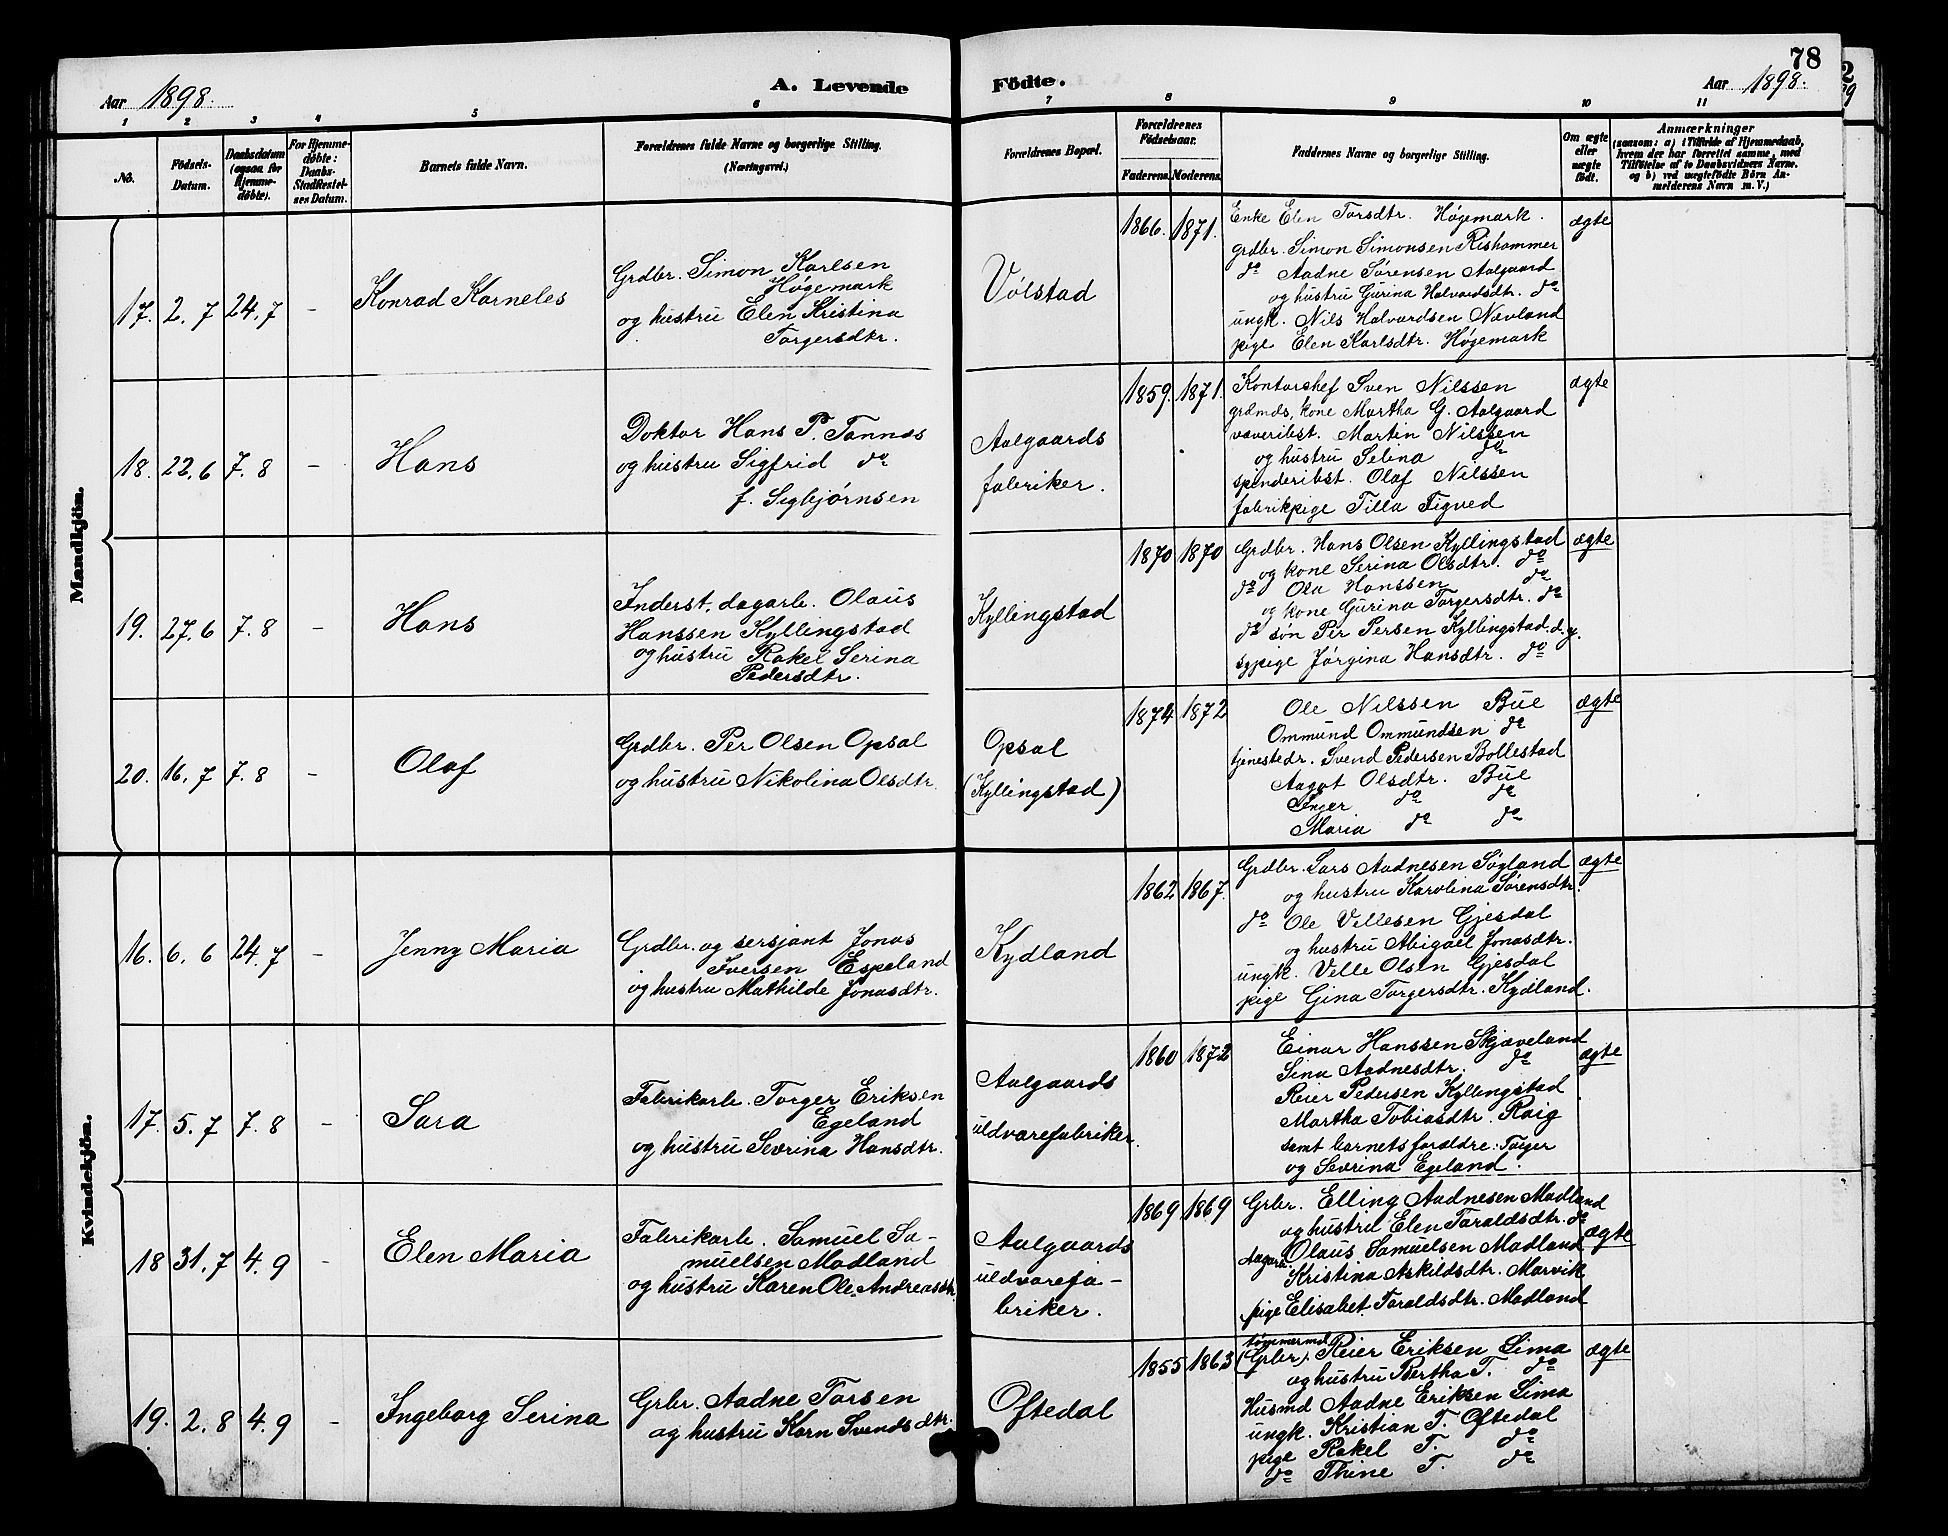 78
Aar 1898.
A. Levende Födte.
Aar 1898.
1 2 3 4 5 6 7 8 9 10 11
No.
Födsels-Datum.
Daabsdatum (ogsaa for Hjemme-döbte).
For Hjemme-döbte: Daabs-Stadfæstel-ses Datum.
Barnets fulde Navn.
Forældrenes fulde Navne og borgerlige Stilling. (Næringsvei.)
Forældrenes Bopæl.
Forældrenes Födselsaar.
Faderens. Moderens.
Faddernes Navne og borgerlige Stilling.
Om ægte eller uægte födt.
Anmærkninger
(saasom: a) i Tilfælde af Hjemmedaab, hvem der har forrettet samme, med Tilföielse af to Daabsvidners Navne. og b) ved uægtefödte Börn An-melderens Navn m. V.)
Mandkjön.
17. 2. 7 24. 7 – Konrad Karneles
Grdbr. Simon Karlsen
Høgemark
og hustru Elen Kristina
Torgersdtr.
Vølstad
1866. 1871.
Enke Elen Torsdtr. Høgemark.
grdbr. Simon Simonsen Rishammer
do Aadne Sørensen Aalgaard
og hustru Gurina Halvardsdtr. do
ungk. Nils Halvardsen Nævland
pige Elen Karlsdtr. Høgemark
ægte
18. 22. 6 7. 8 – Hans
Doktor Hans P. Tannæs
og hustru Sigfrid do
f. Sigbjørnsen
Aalgaards
fabriker.
1859. 1871.
Kontorchef Sven Nilssen
grdmds. kone Martha G. Aalgaard
væveribst. Martin Nilssen
og hustru Selina do
spinderibst. Olaf Nilssen
fabrikpige Tilla Figved
ægte
19. 27. 6 7. 8 – Hans
Inderst, dagarb. Olaus
Hanssen Kyllingstad
og hustru Rakel Serina
Pedersdtr.
Kyllingstad
1870 1870
Grdbr. Hans Olsen Kyllingstad
og kone Serina Olsdtr. do
do Ola Hanssen do
og kone Gurina Torgersdtr. do
do søn Per Persen Kyllingstad. d.y.
sypige Jørgina Hansdtr. do
ægte
20. 16. 7 7. 8 – Olaf
Grdbr. Per Olsen Opsal
og hustru Nikolina Olsdtr.
Opsal
(Kyllingstad)
1874 1872
Ole Nilssen Bue
Ommund Ommundsen do
tjenestedr. Svend Pedersen Bollestad
Aagot Olsdtr. Bue
Inger do do
Maria do do
ægte
Kvindekjön.
16. 6. 6 24. 7 – Jenny Maria
Grdbr. og sersjant Jonas
Iversen Espeland
og hustru Mathilde Jonasdtr.
Kydland
1862 1867.
Grdbr. Lars Aadnesen Søyland
og hustru Karolina Sørensdtr.
do Ole Vellesen Gjesdal
og hustru Abigael Jonasdtr.
ungk. Velle Olsen Gjesdal
pige Gina Torgersdtr. Kydland.
ægte
17. 5. 7 7. 8 – Sara
Fabrikarb. Torger Eriksen
Egeland
og hustru Sevrina Hansdtr.
Aalgaards
uldvarefabriker.
1860 1872
Einar Hanssen Skjæveland
Sina Aadnesdtr. do
Reier Pedersen Kyllingstad
Martha Tobiasdtr. Roig
samt barnets forældre: Torger
og Sevrina Egeland.
ægte
18 31. 7 4. 9 – Elen Maria
Fabrikarb. Samuel Sa-
muelsen Madland
og hustru Karen Ole Andreasdtr.
Aalgaards
uldvarefa-
briker.
1869 1869
Grbr. Elling Aadnesen Madland
og hustru Elen Taraldsdtr. do
dagarb. Olaus Samuelsen Madland
Kristina Askildsdtr. Marvik
pige Elisabet Taraldsdtr. Madland
ægte
19. 2. 8 4. 9 – Ingeborg Serina
Grbr. Aadne Torsen
og hustru Karn Svendsdtr.
Oftedal
1855 1863
tømmermd
(Grbr). Reier Eriksen Lima
og hustru Bertha T. do
Husmd Aadne Eriksen Lima
ungk. Kristian T. Oftedal
pige Rakel T. do
do Thine T. do
ægte